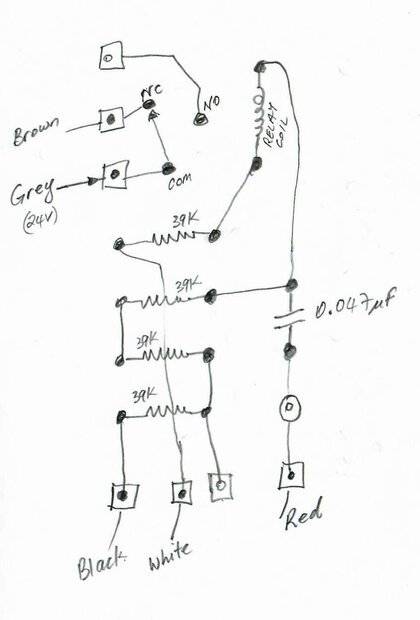 NC
NO
Brown
Grey
(24V)
COM
RELAY
COIL
39K
39K
0.047µF
39K
39K
Black
White
Red